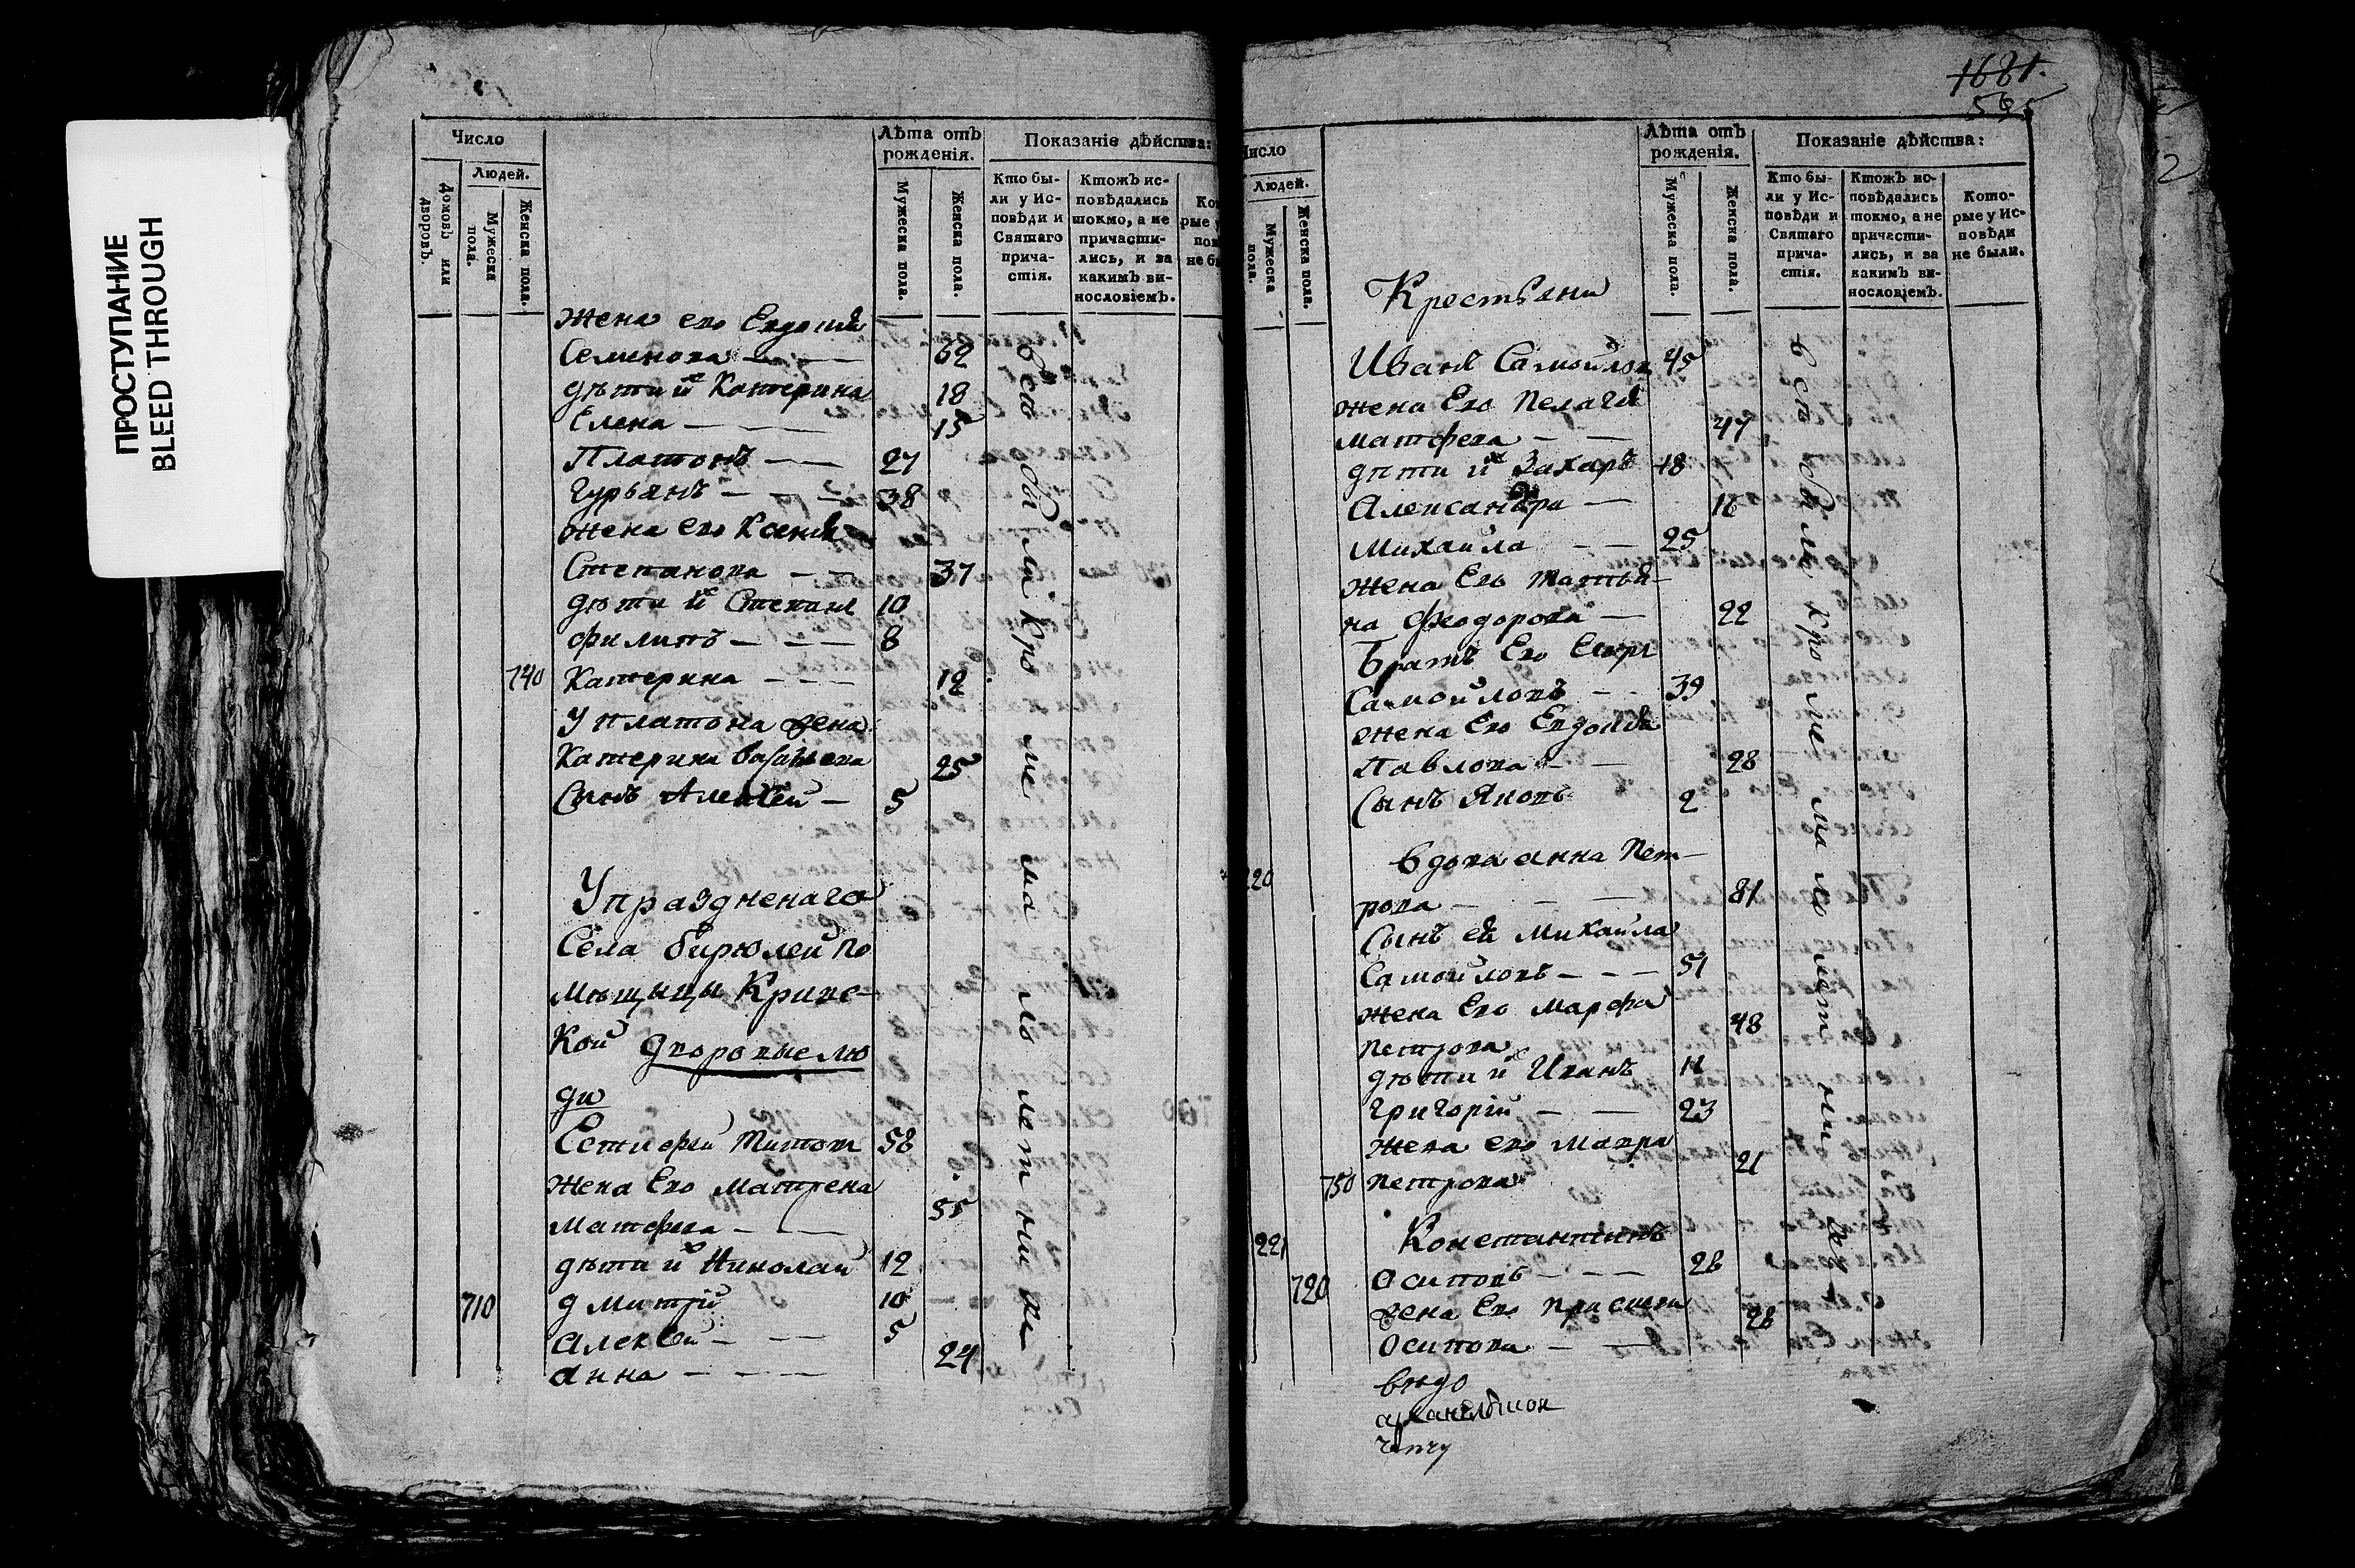 ПРОСТУПАНИЕ
BLEED THROUGH
Число
Людей.
Домовъ или дворовъ.
Мужеска пола.
Женска пола.
Лѣта отъ рожденія.
Мужеска пола.
Женска пола.
Показаніе дѣйства:
Кто бы-
ли у Ис-
повѣди и
Святаго
прича-
стія.
Ктожъ ис-
повѣдались
токмо, а не
причасти-
лись, и за
какимъ ви-
нословіемъ.
жена его Евдокія
Семинова — — 62
дѣти й Катерина 18
Елена — — 15
Платонъ — — 27
Гурьянъ — — 38
жена его Ксенія
Степанова — — 37
дѣти й Степанъ 10
филипъ — — — 8
740 Катерина — — — 12
У платона жена
Катерина васильева 25
Сынъ Алексей — 5
Упраздненаго
Села Бирюлей по
мѣщыцы Кривс-
кой дворовые лю
ди
Естифей Титовъ 58
жена Его Матрена
Матфева — — 55
дѣти й Николай 12
710 дмитрій 10
алексей — — — 5
анна — — — 24
все были кроме мало летни хъ
1681.
595
2
Число
Людей.
Мужеска пола.
Женска пола.
Лѣта отъ рожденія.
Мужеска пола.
Женска пола.
Показаніе дѣйства:
Кто бы-
ли у Ис-
повѣди и
Святаго
прича-
стія.
Ктожъ ис-
повѣдались
токмо, а не
причасти-
лись, и за
какимъ ви-
нословіемъ.
Кото-
рые у Ис-
повѣди
не были.
Крестьяни
Иванъ Самойловъ 45
жена Его Пелагія
матфева — — 47
дѣти й Захаръ 18
Александра — 16
Михаила — — 25
жена Его татья-
на Феодорова — 22
Братъ Его Егоръ
Самойловъ — — 39
жена Его Евдокія
Павлова — — 28
Сынъ Яковъ 2
220 вдова анна Пет-
рова — — — 81
Сынъ ей Михаила
Самойловъ — — — 51
жена Его марфа
петрова 48
дѣти й Иванъ 11
григорій — — 23
жена его мавра
750 петрова 21
221 Константинъ
720 Осиповъ — — — 26
жена Его
Осипова — — 26
все были кроме мало лет ни хъ